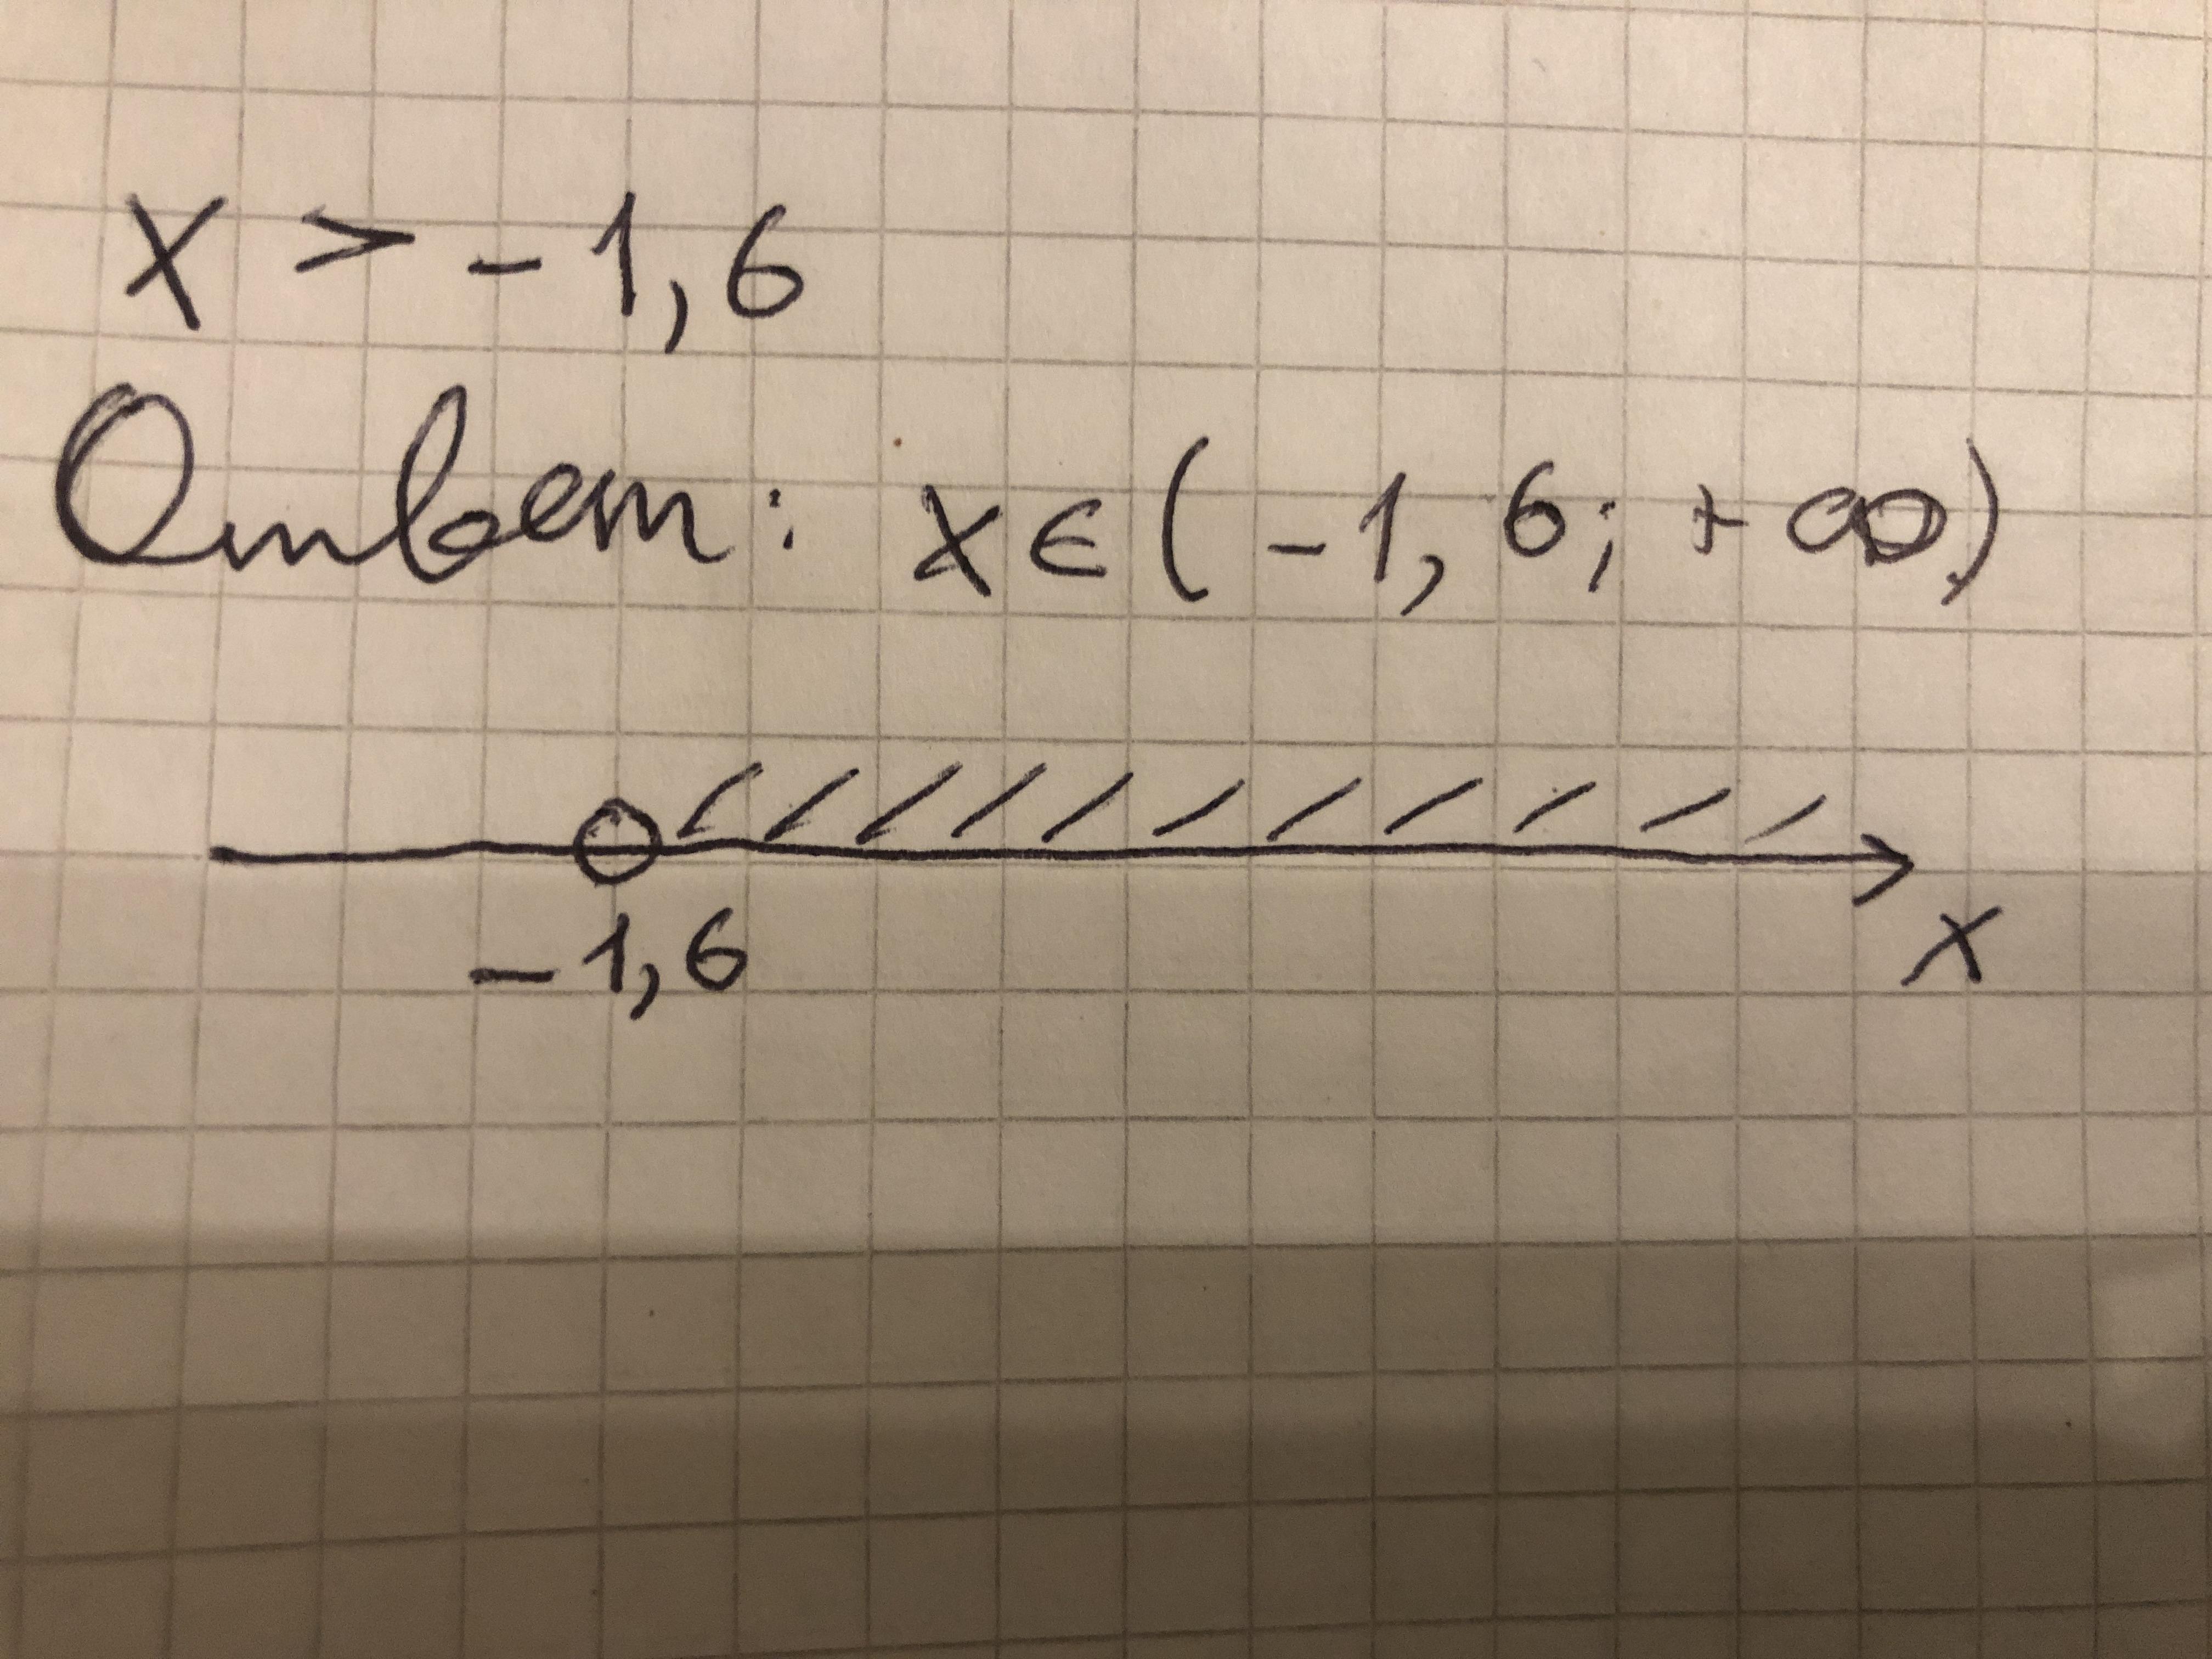 x > -1,6
Ответ: x ∈ (-1,6; +∞)
-1,6
x